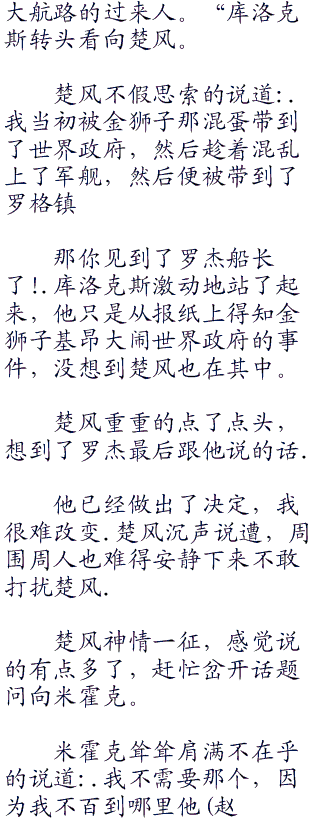 大航路的过来人。“库洛克
斯转头看向楚风。
楚风不假思索的说道:.
我当初被金狮子那混蛋带到
了世界政府，然后趁着混乱
上了军舰，然后便被带到了
罗格镇
那你见到了罗杰船长
了!.库洛克斯激动地站了起
来，他只是从报纸上得知金
狮子基昂大闹世界政府的事
件，没想到楚风也在其中。
楚风重重的点了点头，
想到了罗杰最后跟他说的话.
他已经做出了决定，我
很难改变.楚风沉声说遭，周
围周人也难得安静下来不敢
打扰楚风.
楚风神情一征，感觉说
的有点多了，赶忙岔开话题
问向米霍克。
米霍克耸耸肩满不在乎
的说道:.我不需要那个，因
为我不百到哪里他(赵